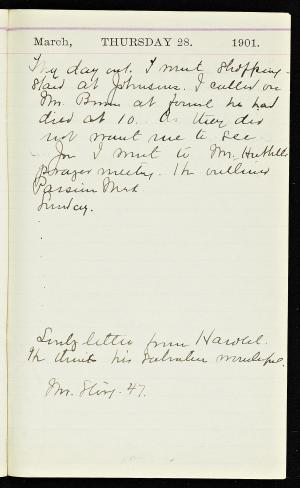 March, THURSDAY 28. 1901.
My day out. I went shopping
staid at Johnsons. I called on
Mr. at found he had
died at 10. as they did
not want me to see
I went to Mr.
prayer meeting. He outlined
Passion Week
Sunday.
letter from Harold.
He thinks his salvation wonderful.
Mr. 47.